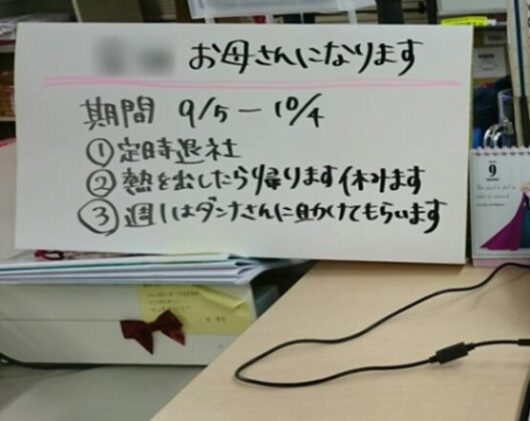 お母さんになります
期間 9/5－10/4
①定時退社
②熱を出したら帰ります休みます
③週1はダンナさんに助けてもらいます
9